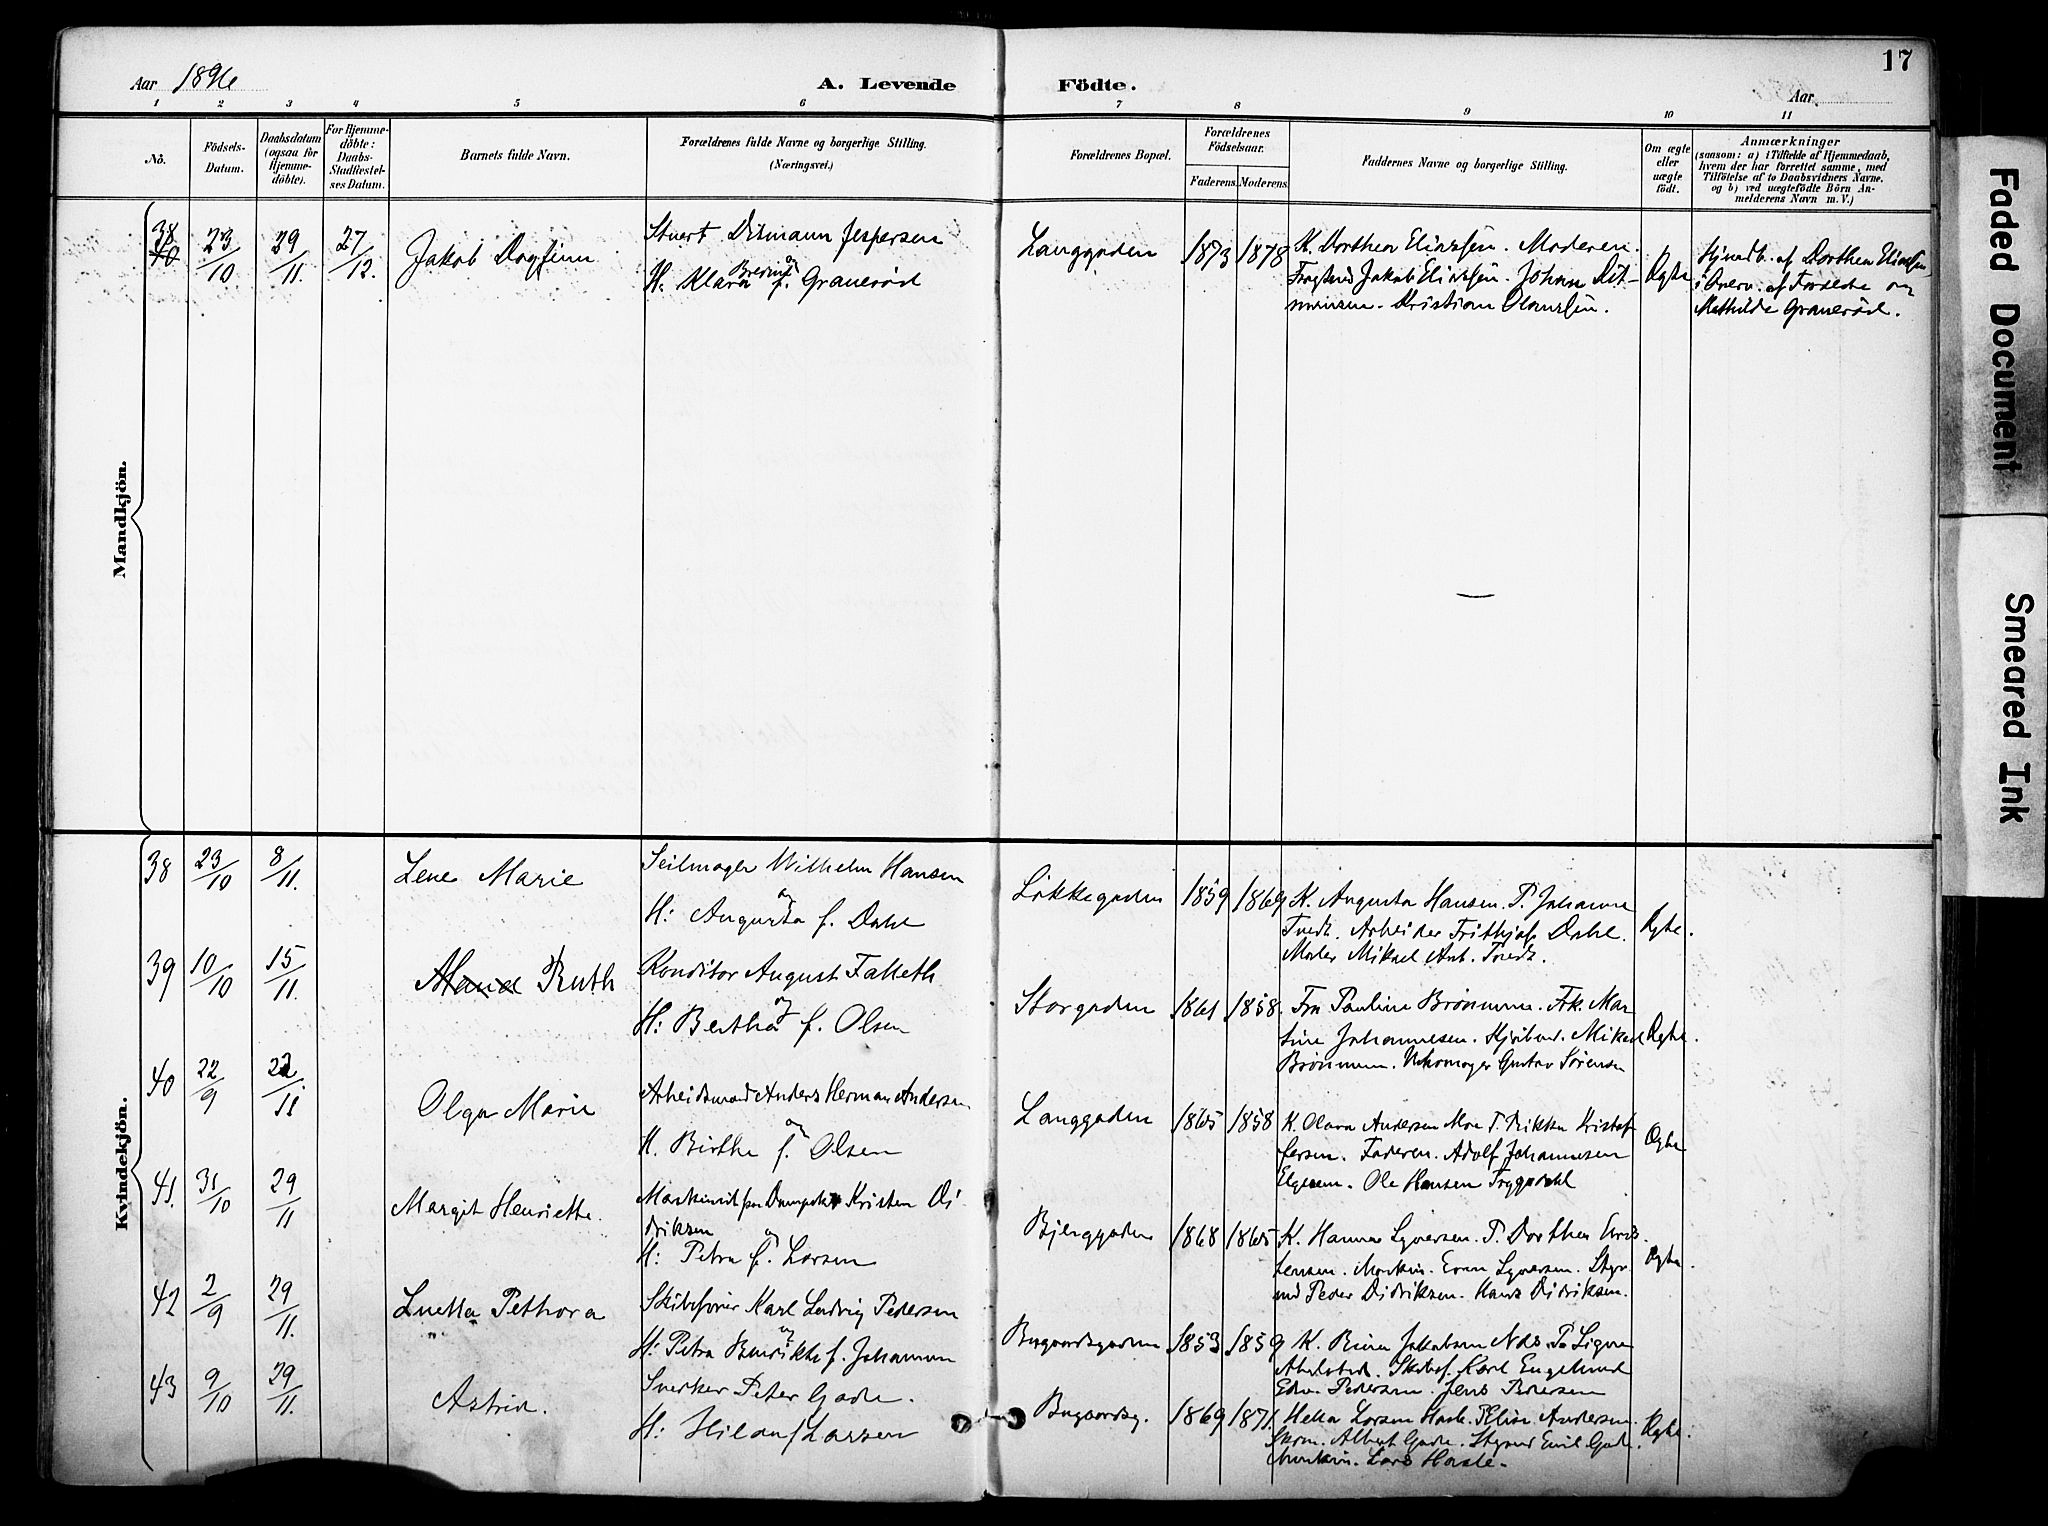 17
Aar 1896
A. Levende Födte.
Aar
1 2 3 4 5 6 7 8 9 10 11
No.
Födsels-Datum.
Daabsdatum (ogsaa for Hjemme-döbte).
For Hjemme-döbte: Daabs-Stadfæstel-ses Datum.
Barnets fulde Navn.
Forældrenes fulde Navne og borgerlige Stilling.
(Næringsvei.)
Forældrenes Bopæl.
Forældrenes Födselsaar.
Faderens. Moderens.
Faddernes Navne og borgerlige Stilling.
Om ægte eller uægte födt.
Anmærkninger
(saasom: a) i Tilfælde af Hjemmedaab,
hvem der har forrettet samme, med
Tilföielse af to Daabsvidners Navne,
og b) ved uægtefödte Börn An-
melderens Navn m. V.)
Mandkjön.
38 40 23/10 29/11. 27/12. Jakob Dagfinn
Ditmann Jespersen
og
H: Klara f. Granerød
Langgaden 1873 1878
K. Dorthea Eliassen. Moderen.
Jakob Eliassen. Johan Dit-
mansen. Kristian Olaussen.
Ægte
Hjemdb. af Dorthea Eliassen
af Forældre og
Mathilde Granerød.
Kvindekjön.
38 23/10 8/11. Lene Marie
Seilmager Wilhelm Hansen
og
H: Augusta f. Dahl
Løkkegaden 1859 1869
K. Augusta Hansen. P. Johanne
Tvedt. Arbeider Frithjof Dahl.
Maler Mikael Ant. Tvedt.
Ægte.
39 10/10 15/11. Ruth
Konditor August Falleth
og
H: Bertha f. Olsen
Storgaden 1861 1858.
Fru Pauline Brønmum. Frk. Mar
tine Johannesen. Kjøbmd. Mikael
Brønmum. Uhrmager Gustav Sørensen
Ægte.
40 22/9 22/11 Olga Marie
Arbeidsmand Anders Herman Andersen
og
H. Birthe f. Olsen
Langgaden 1865 1858
K. Olava Andersen Moe P. Rikka Kristof
fersen. Faderen. Adolf Johannesen
Elgesem. Ole Hansen Tryggedahl
Ægte
41. 31/10 29/11 Margit Henriette.
Kristen Di
driksen
og
H: Petra f. Larsen
Bjerggaden 1868 1865
K. Hanna Syversen. P. Dorthea Chris
tensen. Maskin. Even Syversen. Styr
md Peder Didriksen. Hans Didriksen.
Ægte.
42 2/9 29/11. Luella Pethora
Skibsfører Karl Ludvig Pedersen
og
H: Petra Benedikte f. Johannsen
Bugaardsgaden 1853 1859
Skibsf. Karl Engelund
Edv. Pedersen. Jens Pedersen
43 9/10 29/11. Astrid.
Snekker Peter Gade.
H: Hilda f Larsen
Bugaardsg. 1869 1871.
Hella Larsen Hasle. P. Elise Andersen.
Albert Gade. Styrmd Emil Gade.
Maskin. Lars Hasle.
Ægte.
Faded Document
Smeared Ink